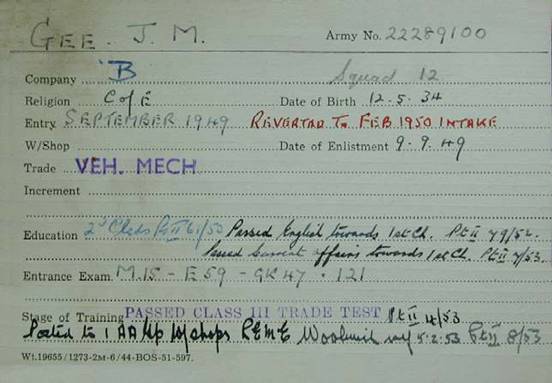 GEE. J. M. Army No. 22289100
Company B Squad 12
Religion C of E Date of Birth 12.5.34
Entry SEPTEMBER 1949 REVERTED TO FEB 1950 INTAKE
W/Shop Date of Enlistment 9.9.49
Trade VEH. MECH
Increment
Education 2nd Class Pt II 61/50 Passed English towards 1st Ch. Pt II 79/52.
Passed Current affairs towards 1st Ch. Pt II 7/53.
Entrance Exam. M.15 - E 59 - GK 47 . 121
Stage of Training PASSED CLASS III TRADE TEST Pt II 4/53
Posted to 1 AA W/shops REME Woolwich wef 5.2.53 Pt II 8/53
Wt.19655/1273-2M-6/44-BOS-51-597.